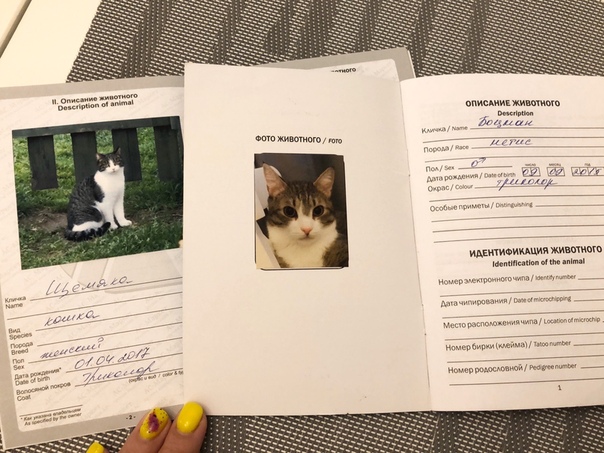 II. Описание животного
Description of animal
Кличка Щемяка
Name
Вид кошка
Species
Порода
Breed
Пол женский
Sex
Дата рождения* 01.04.2017
Date of birth
Волосяной покров Триколор
Coat
* Как указана владельцем
As specified by the owner
- 2 -
ФОТО ЖИВОТНОГО / FOTO
ОПИСАНИЕ ЖИВОТНОГО
Description
Кличка / Name Боцман
Порода / Race метис
Пол / Sex ♂
число месяц год
Дата рождения / Date of birth
Окрас / Colour триколор
Особые приметы / Distinguishing
ИДЕНТИФИКАЦИЯ ЖИВОТНОГО
Identification of the animal
Номер электронного чипа / Identify number
Дата чипирования / Date of microchipping
Место расположения чипа / Location of microchip
Номер бирки (клейма) / Tatoo number
Номер родословной / Pedigree number
1